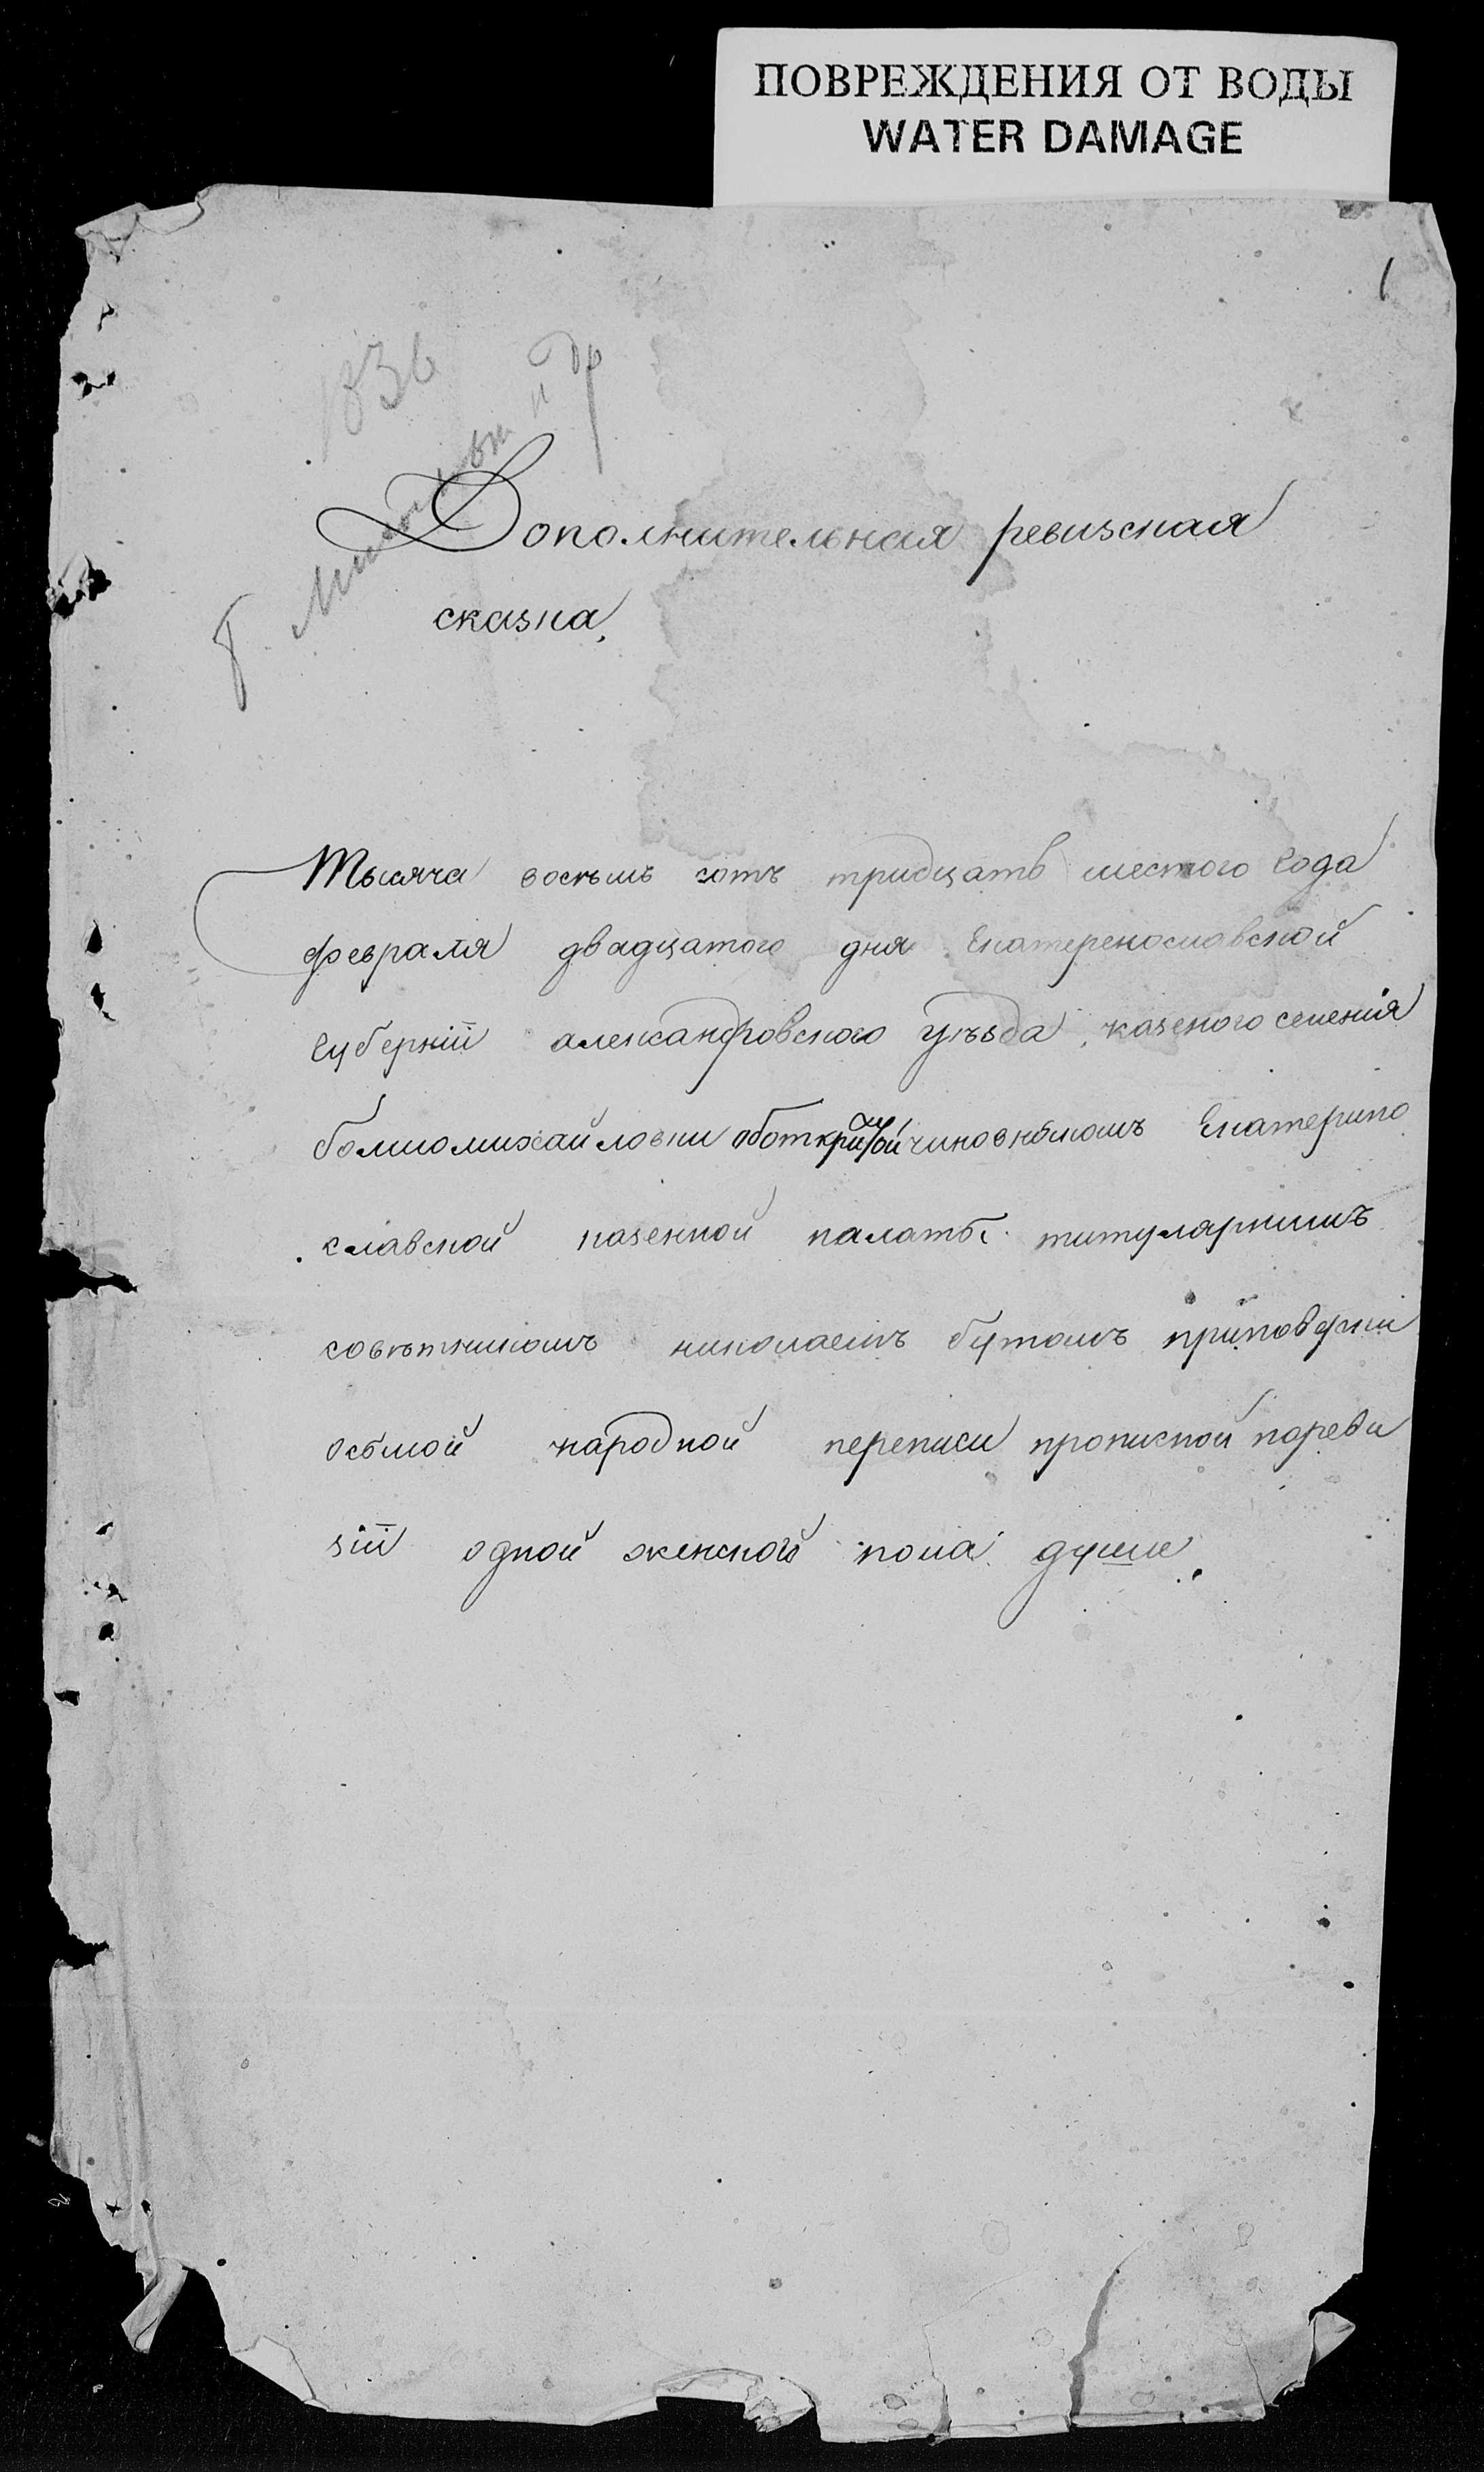 ПОВРЕЖДЕНИЯ ОТ ВОДЫ
WATER DAMAGE
1
1836
и др
Дополнительная ревизская
сказка,
Тысяча восемь сотъ тридцать шестого года
февраля двадцатого дня Екатеренославской
губерніи александровского уѣзда, казеного селенія
болшомихайловки оботкритой чиновникомъ Екатерино
славской казенной палаты титулярнимъ
совѣтникомъ николаемъ бутомъ приповерки
осьмой народной переписи прописной пореви
зіи одной женской пола души.